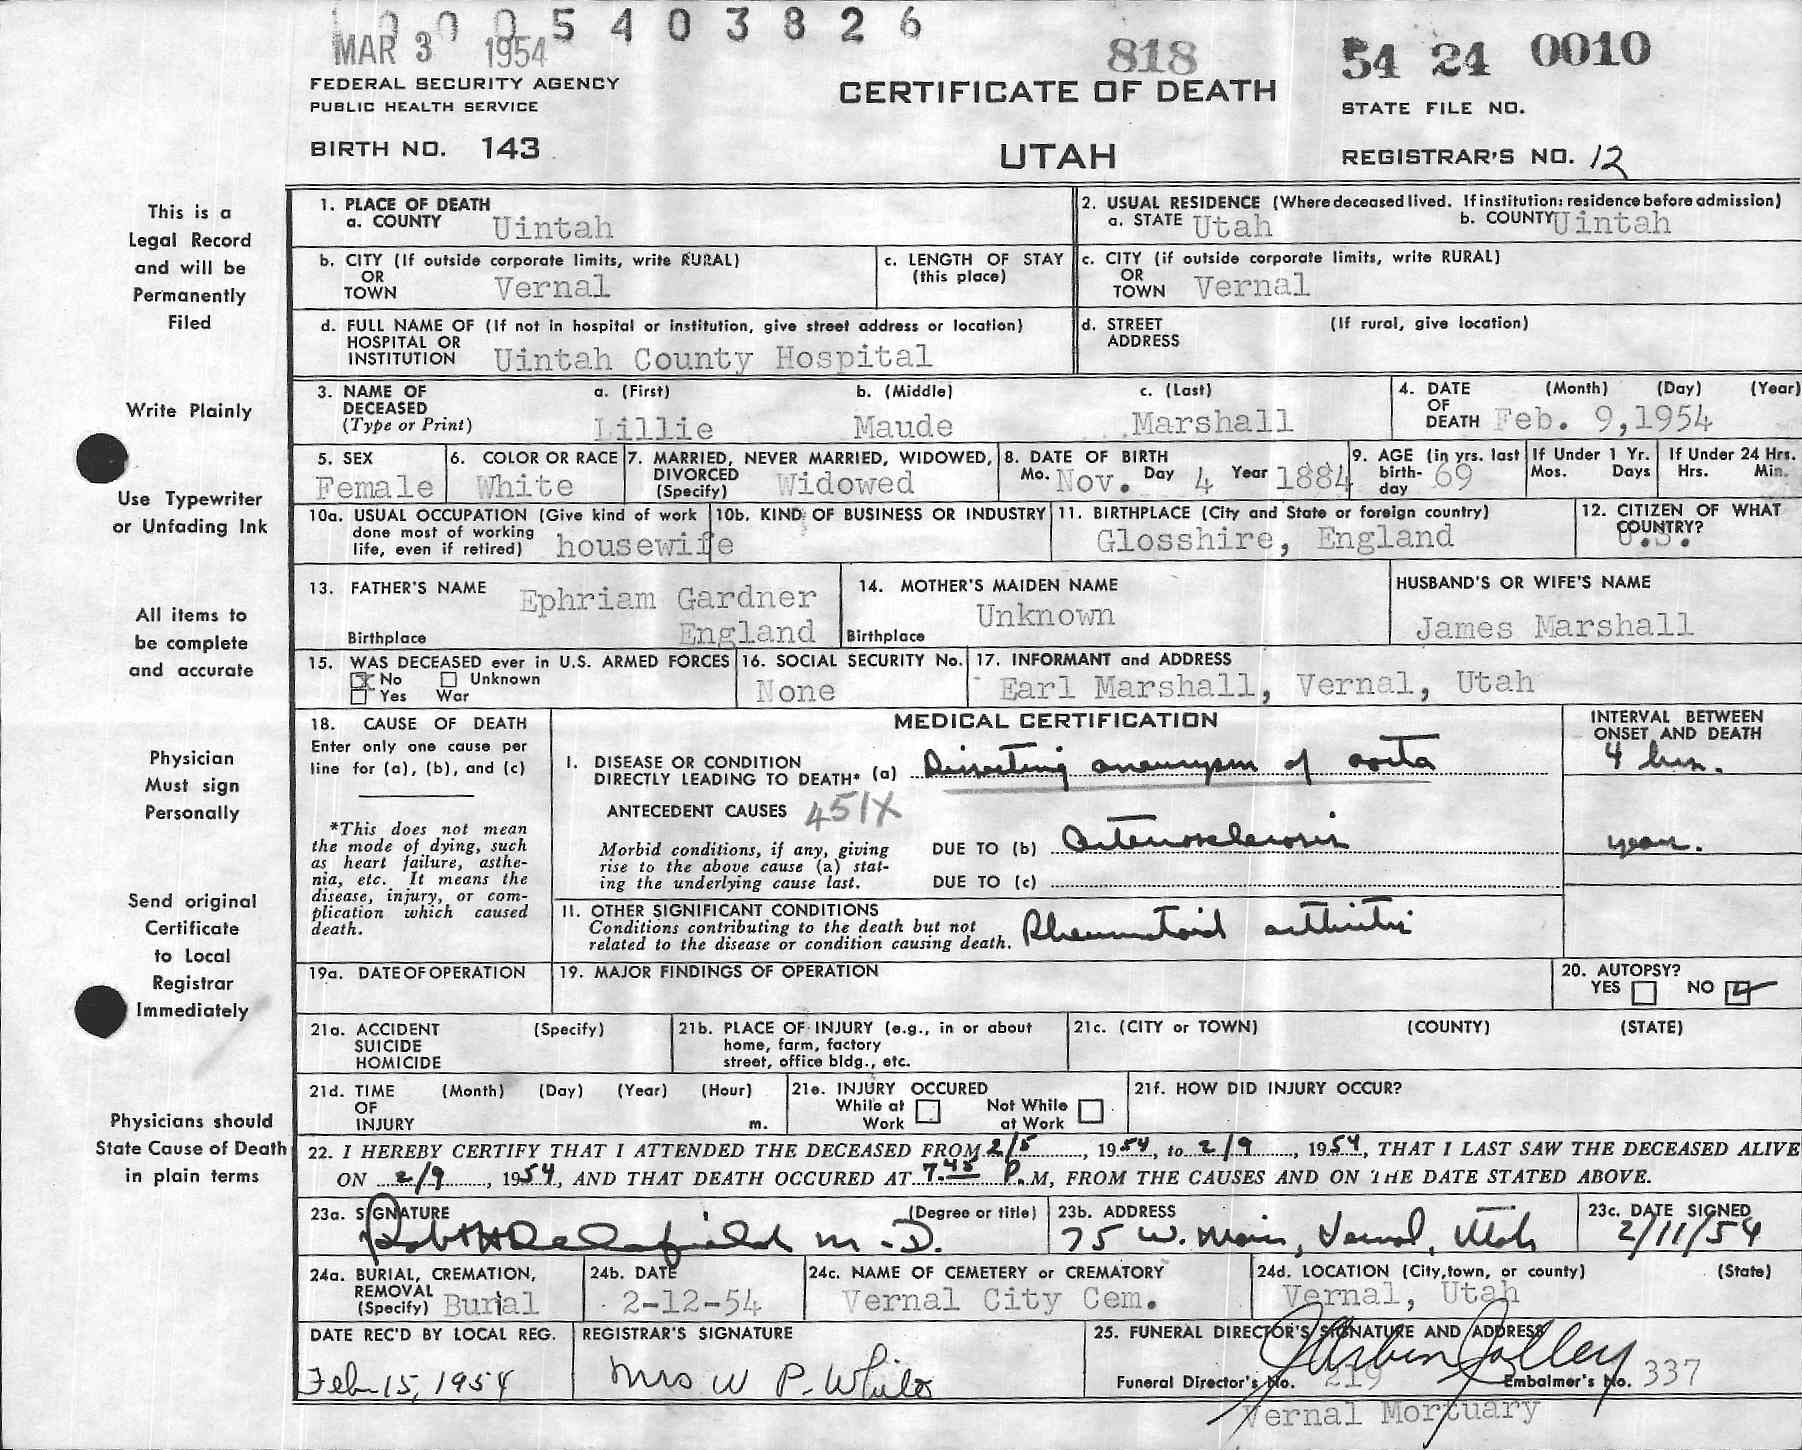 1 0 0 0 5 4 0 3 8 2 6
MAR 3 1954
818
54 24 0010
FEDERAL SECURITY AGENCY
PUBLIC HEALTH SERVICE
CERTIFICATE OF DEATH
STATE FILE NO.
BIRTH NO. 143
UTAH
REGISTRAR'S NO. 12
This is a
Legal Record
and will be
Permanently
Filed
Write Plainly
Use Typewriter
or Unfading Ink
All items to
be complete
and accurate
Physician
Must sign
Personally
Send original
Certificate
to Local
Registrar
Immediately
Physicians should
State Cause of Death
in plain terms
1. PLACE OF DEATH
a. COUNTY Uintah
2. USUAL RESIDENCE (Where deceased lived. If institution: residence before admission)
a. STATE Utah b. COUNTY Uintah
b. CITY (If outside corporate limits, write RURAL)
OR
TOWN Vernal
c. LENGTH OF STAY
(this place)
c. CITY (if outside corporate limits, write RURAL)
OR
TOWN Vernal
d. FULL NAME OF (If not in hospital or institution, give street address or location)
HOSPITAL OR
INSTITUTION Uintah County Hospital
d. STREET (If rural, give location)
ADDRESS
3. NAME OF a. (First) b. (Middle) c. (Last)
DECEASED
(Type or Print) Lillie Maude Marshall
4. DATE (Month) (Day) (Year)
OF
DEATH Feb. 9,1954
5. SEX
Female
6. COLOR OR RACE
White
7. MARRIED, NEVER MARRIED, WIDOWED,
DIVORCED
(Specify) Widowed
8. DATE OF BIRTH
Mo. Nov. Day 4 Year 1884
9. AGE (in yrs. last
birth-
day 69
If Under 1 Yr.
Mos. Days
If Under 24 Hrs.
Hrs. Min.
10a. USUAL OCCUPATION (Give kind of work
done most of working
life, even if retired) housewife
10b. KIND OF BUSINESS OR INDUSTRY
11. BIRTHPLACE (City and State or foreign country)
Glosshire, England
12. CITIZEN OF WHAT
COUNTRY?
U.S.
13. FATHER'S NAME Ephriam Gardner
Birthplace England
14. MOTHER'S MAIDEN NAME
Unknown
Birthplace
HUSBAND'S OR WIFE'S NAME
James Marshall
15. WAS DECEASED ever in U.S. ARMED FORCES
x No Unknown
Yes War
16. SOCIAL SECURITY No.
None
17. INFORMANT and ADDRESS
Earl Marshall, Vernal, Utah
18. CAUSE OF DEATH
Enter only one cause per
line for (a), (b), and (c)
*This does not mean
the mode of dying, such
as heart failure, asthe-
nia, etc. It means the
disease, injury, or com-
plication which caused
death.
MEDICAL CERTIFICATION
INTERVAL BETWEEN
ONSET AND DEATH
I. DISEASE OR CONDITION
DIRECTLY LEADING TO DEATH* (a) Dissecting aneurysm of aorta 4 hrs.
ANTECEDENT CAUSES 451X
Morbid conditions, if any, giving
rise to the above cause (a) stat-
ing the underlying cause last.
DUE TO (b) arteriosclerosis years.
DUE TO (c)
II. OTHER SIGNIFICANT CONDITIONS
Conditions contributing to the death but not
related to the disease or condition causing death. Rheumatoid arthritis
19a. DATE OF OPERATION
19. MAJOR FINDINGS OF OPERATION
20. AUTOPSY?
YES NO
21a. ACCIDENT (Specify)
SUICIDE
HOMICIDE
21b. PLACE OF INJURY (e.g., in or about
home, farm, factory
street, office bldg., etc.
21c. (CITY or TOWN) (COUNTY) (STATE)
21d. TIME (Month) (Day) (Year) (Hour)
OF
INJURY m.
21e. INJURY OCCURED
While at Not While
Work at Work
21f. HOW DID INJURY OCCUR?
22. I HEREBY CERTIFY THAT I ATTENDED THE DECEASED FROM 2/5, 1954, to 2/9, 1954, THAT I LAST SAW THE DECEASED ALIVE
ON 2/9, 1954, AND THAT DEATH OCCURED AT 7.45 P.M, FROM THE CAUSES AND ON THE DATE STATED ABOVE.
23a. SIGNATURE (Degree or title)
M.D.
23b. ADDRESS
75 W. Main, Vernal, Utah
23c. DATE SIGNED
2/11/54
24a. BURIAL, CREMATION,
REMOVAL
(Specify) Burial
24b. DATE
2-12-54
24c. NAME OF CEMETERY or CREMATORY
Vernal City Cem.
24d. LOCATION (City,town, or county) (State)
Vernal, Utah
DATE REC'D BY LOCAL REG.
Feb. 15, 1954
REGISTRAR'S SIGNATURE
Mrs W P. White
25. FUNERAL DIRECTOR'S SIGNATURE AND ADDRESS
Funeral Director's No. 219 Embalmer's No. 337
Vernal Mortuary